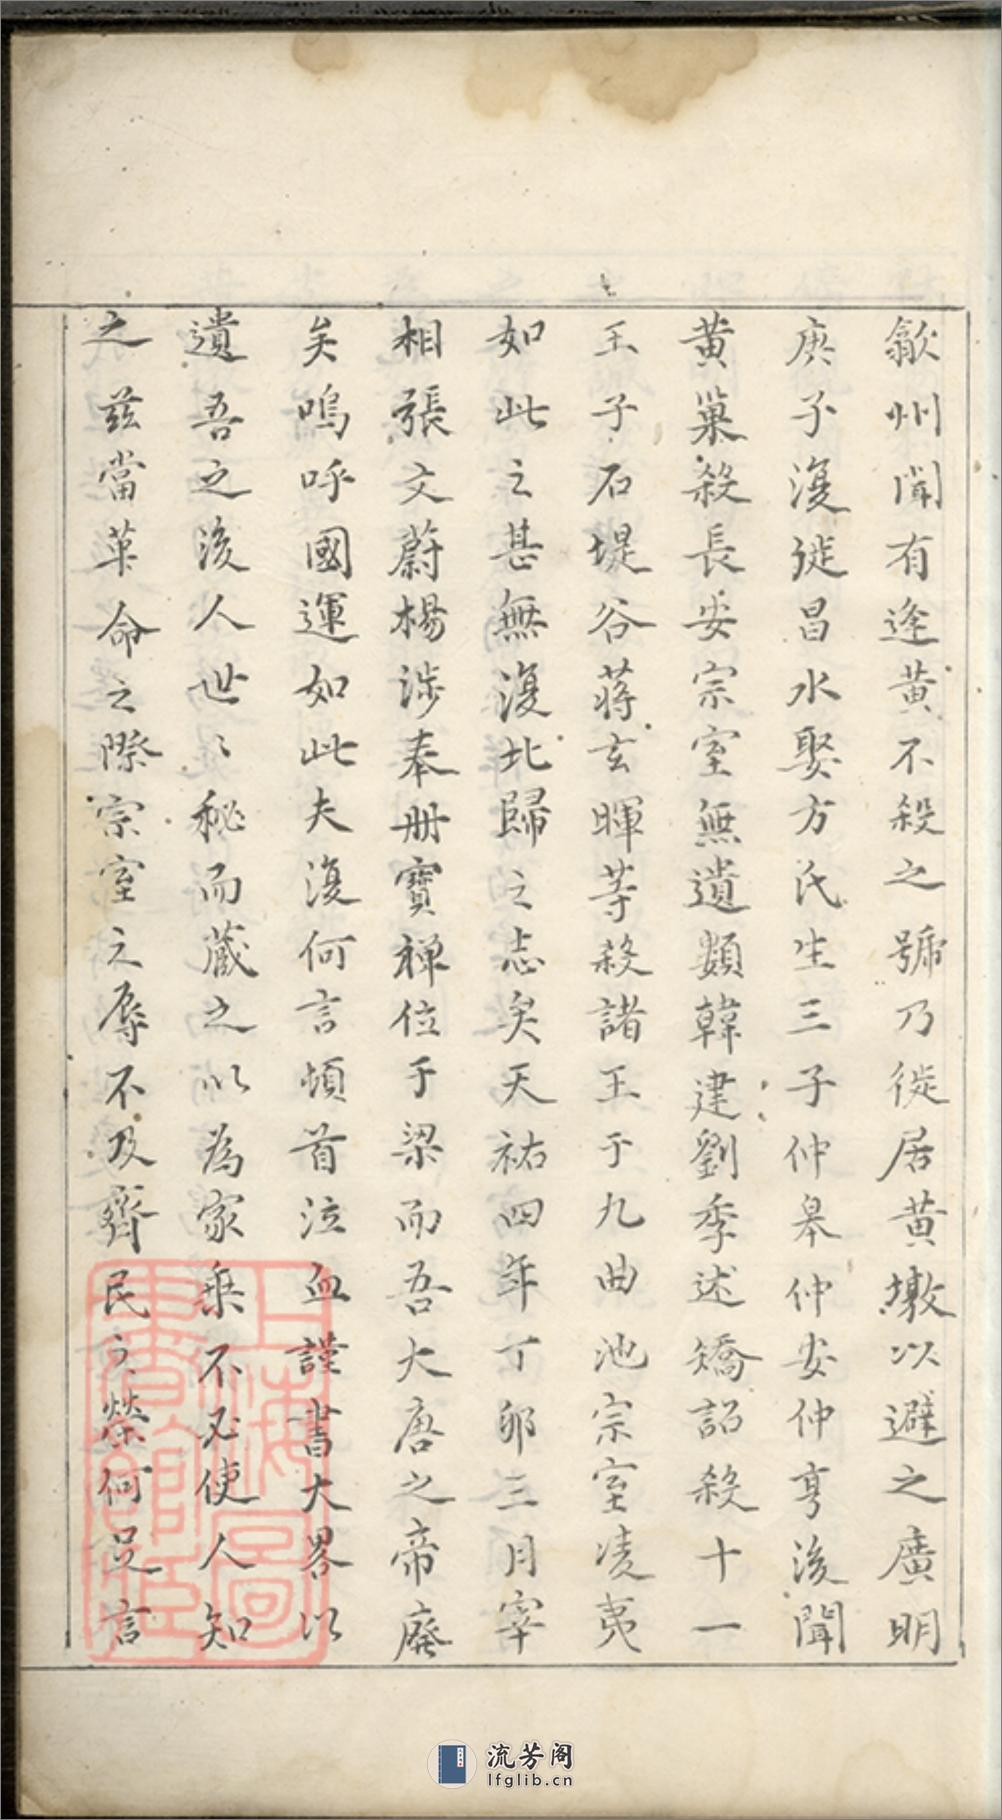 歙州聞有逢黄不殺之號乃徙居黄墩以避之廣明
庚子復徙昌水娶方氏生三子仲皋仲安仲亨後聞
黄巢殺長安宗室無遺類韓建劉季述矯詔殺十一
王子石堤谷蔣玄暉等殺諸王于九曲池宗室凌夷
如此之甚無復北歸之志矣天祐四年丁卯三月宰
相張文蔚楊涉奉册寶禅位于梁而吾大唐之帝廢
矣嗚呼國運如此夫復何言頓首泣血謹書大畧以
遺吾之後人世〻秘而蔵之以為家乗不必使人知
之兹當革命之際宗室之辱不及齊民之榮何足言
上海圖書館藏
流芳阁
lfglib.cn